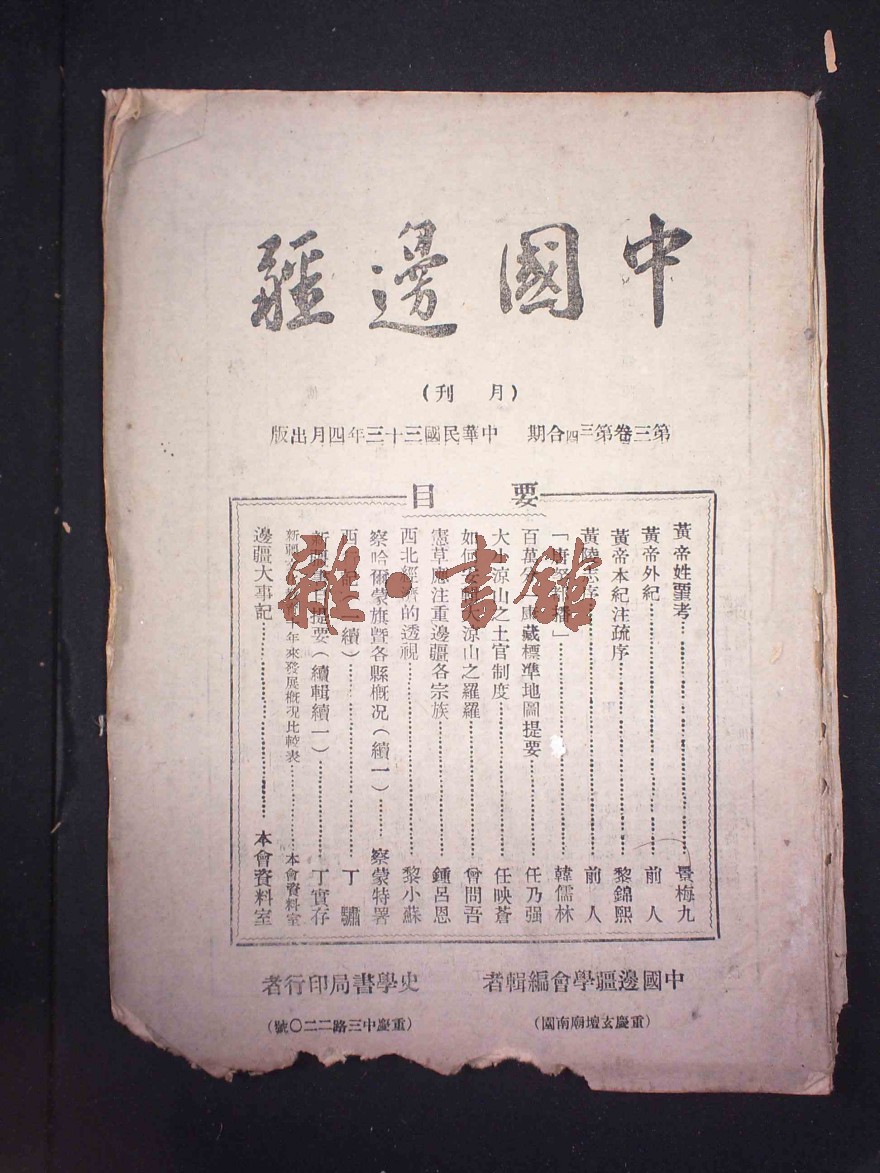 中國邊疆
（月刊）
第三卷第三四合期 中華民國三十三年四月出版
要目
黃帝姓璽考 景梅九
黃帝外紀 前人
黃帝本紀注疏序 黎錦熙
黃陵志序 前人
韓儒林
百萬分 庫藏標準地圖提要 任乃强
大小涼山之土官制度 任映蒼
如何安 大涼山之羅羅 曾問吾
憲草應注重邊疆各宗族 鍾呂恩
西北經濟的透視 黎小蘇
察哈爾蒙旗暨各縣概况（續一） 察蒙特署
西 記（續） 丁驌
新疆書目提要（續輯續一） 丁實存
新疆 年來發展概况比較表 本會資料室
邊疆大事記 本會資料室
中國邊疆學會編輯者
（重慶玄壇廟南園）
史學書局印行者
（重慶中三路二二〇號）
雜·書館